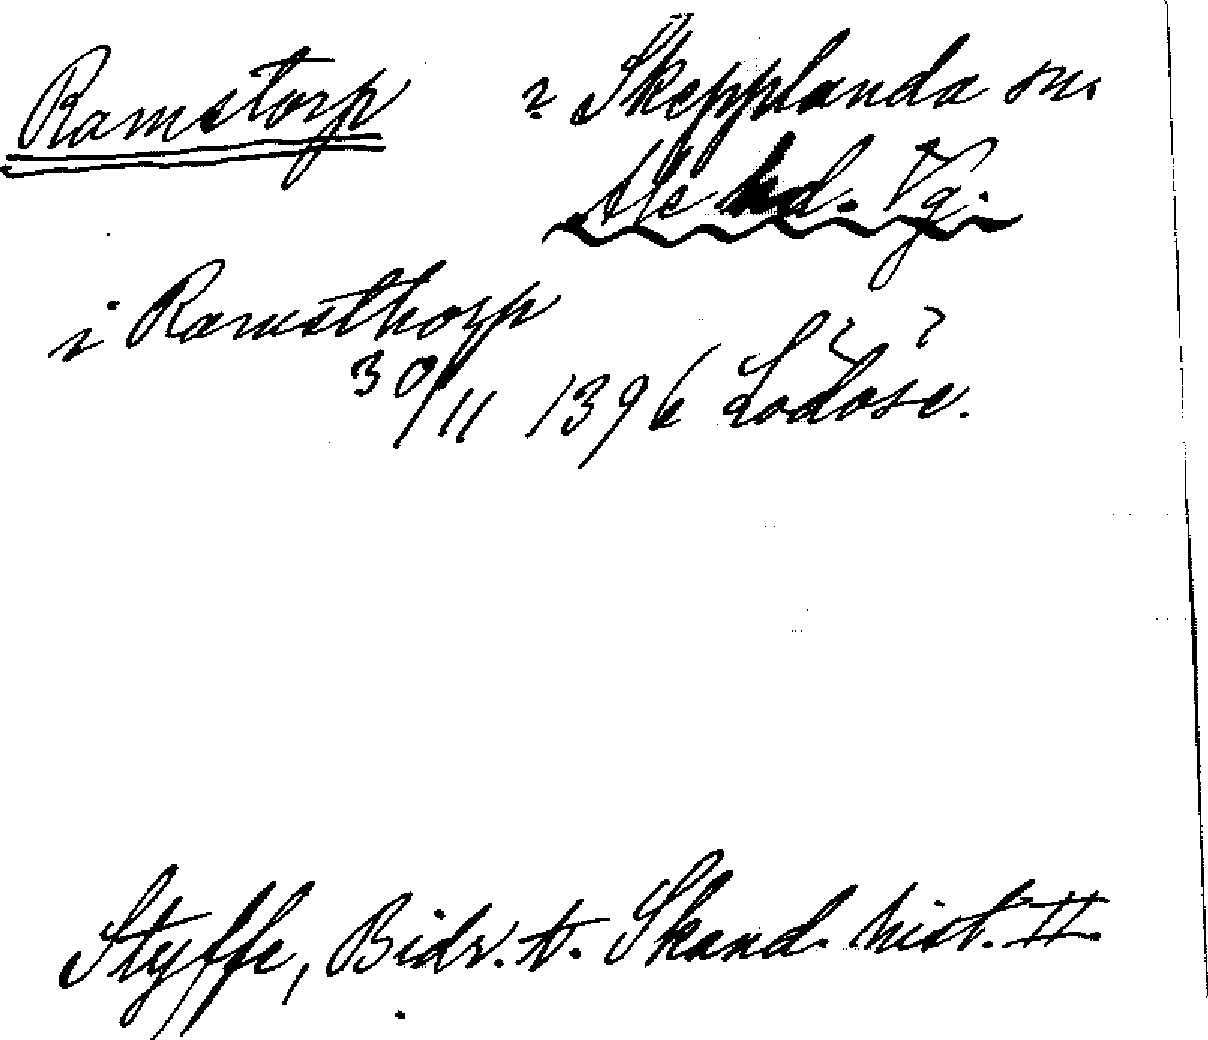 Ramstorp ? Skepplanda sn.
Ale hd. Vg.
i Ramsthorp
30/11 1396 Lödöse.
Styffe, Bidr. t. Skand. hist. II.